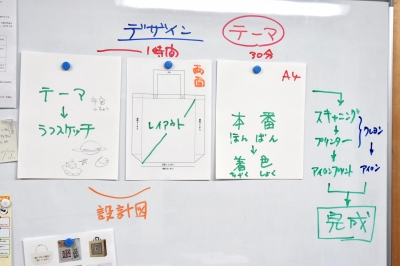 デザイン
1時間
テーマ
30分
テーマ
↓
ラフスケッチ
両面
レイアウト
A4
本番
ほんばん
↓
着色
ちゃくしょく
設計図
スキャニング
↓
プリンター
↓
アイロンプリント
クレヨン
↓
アイロン
↓
完成